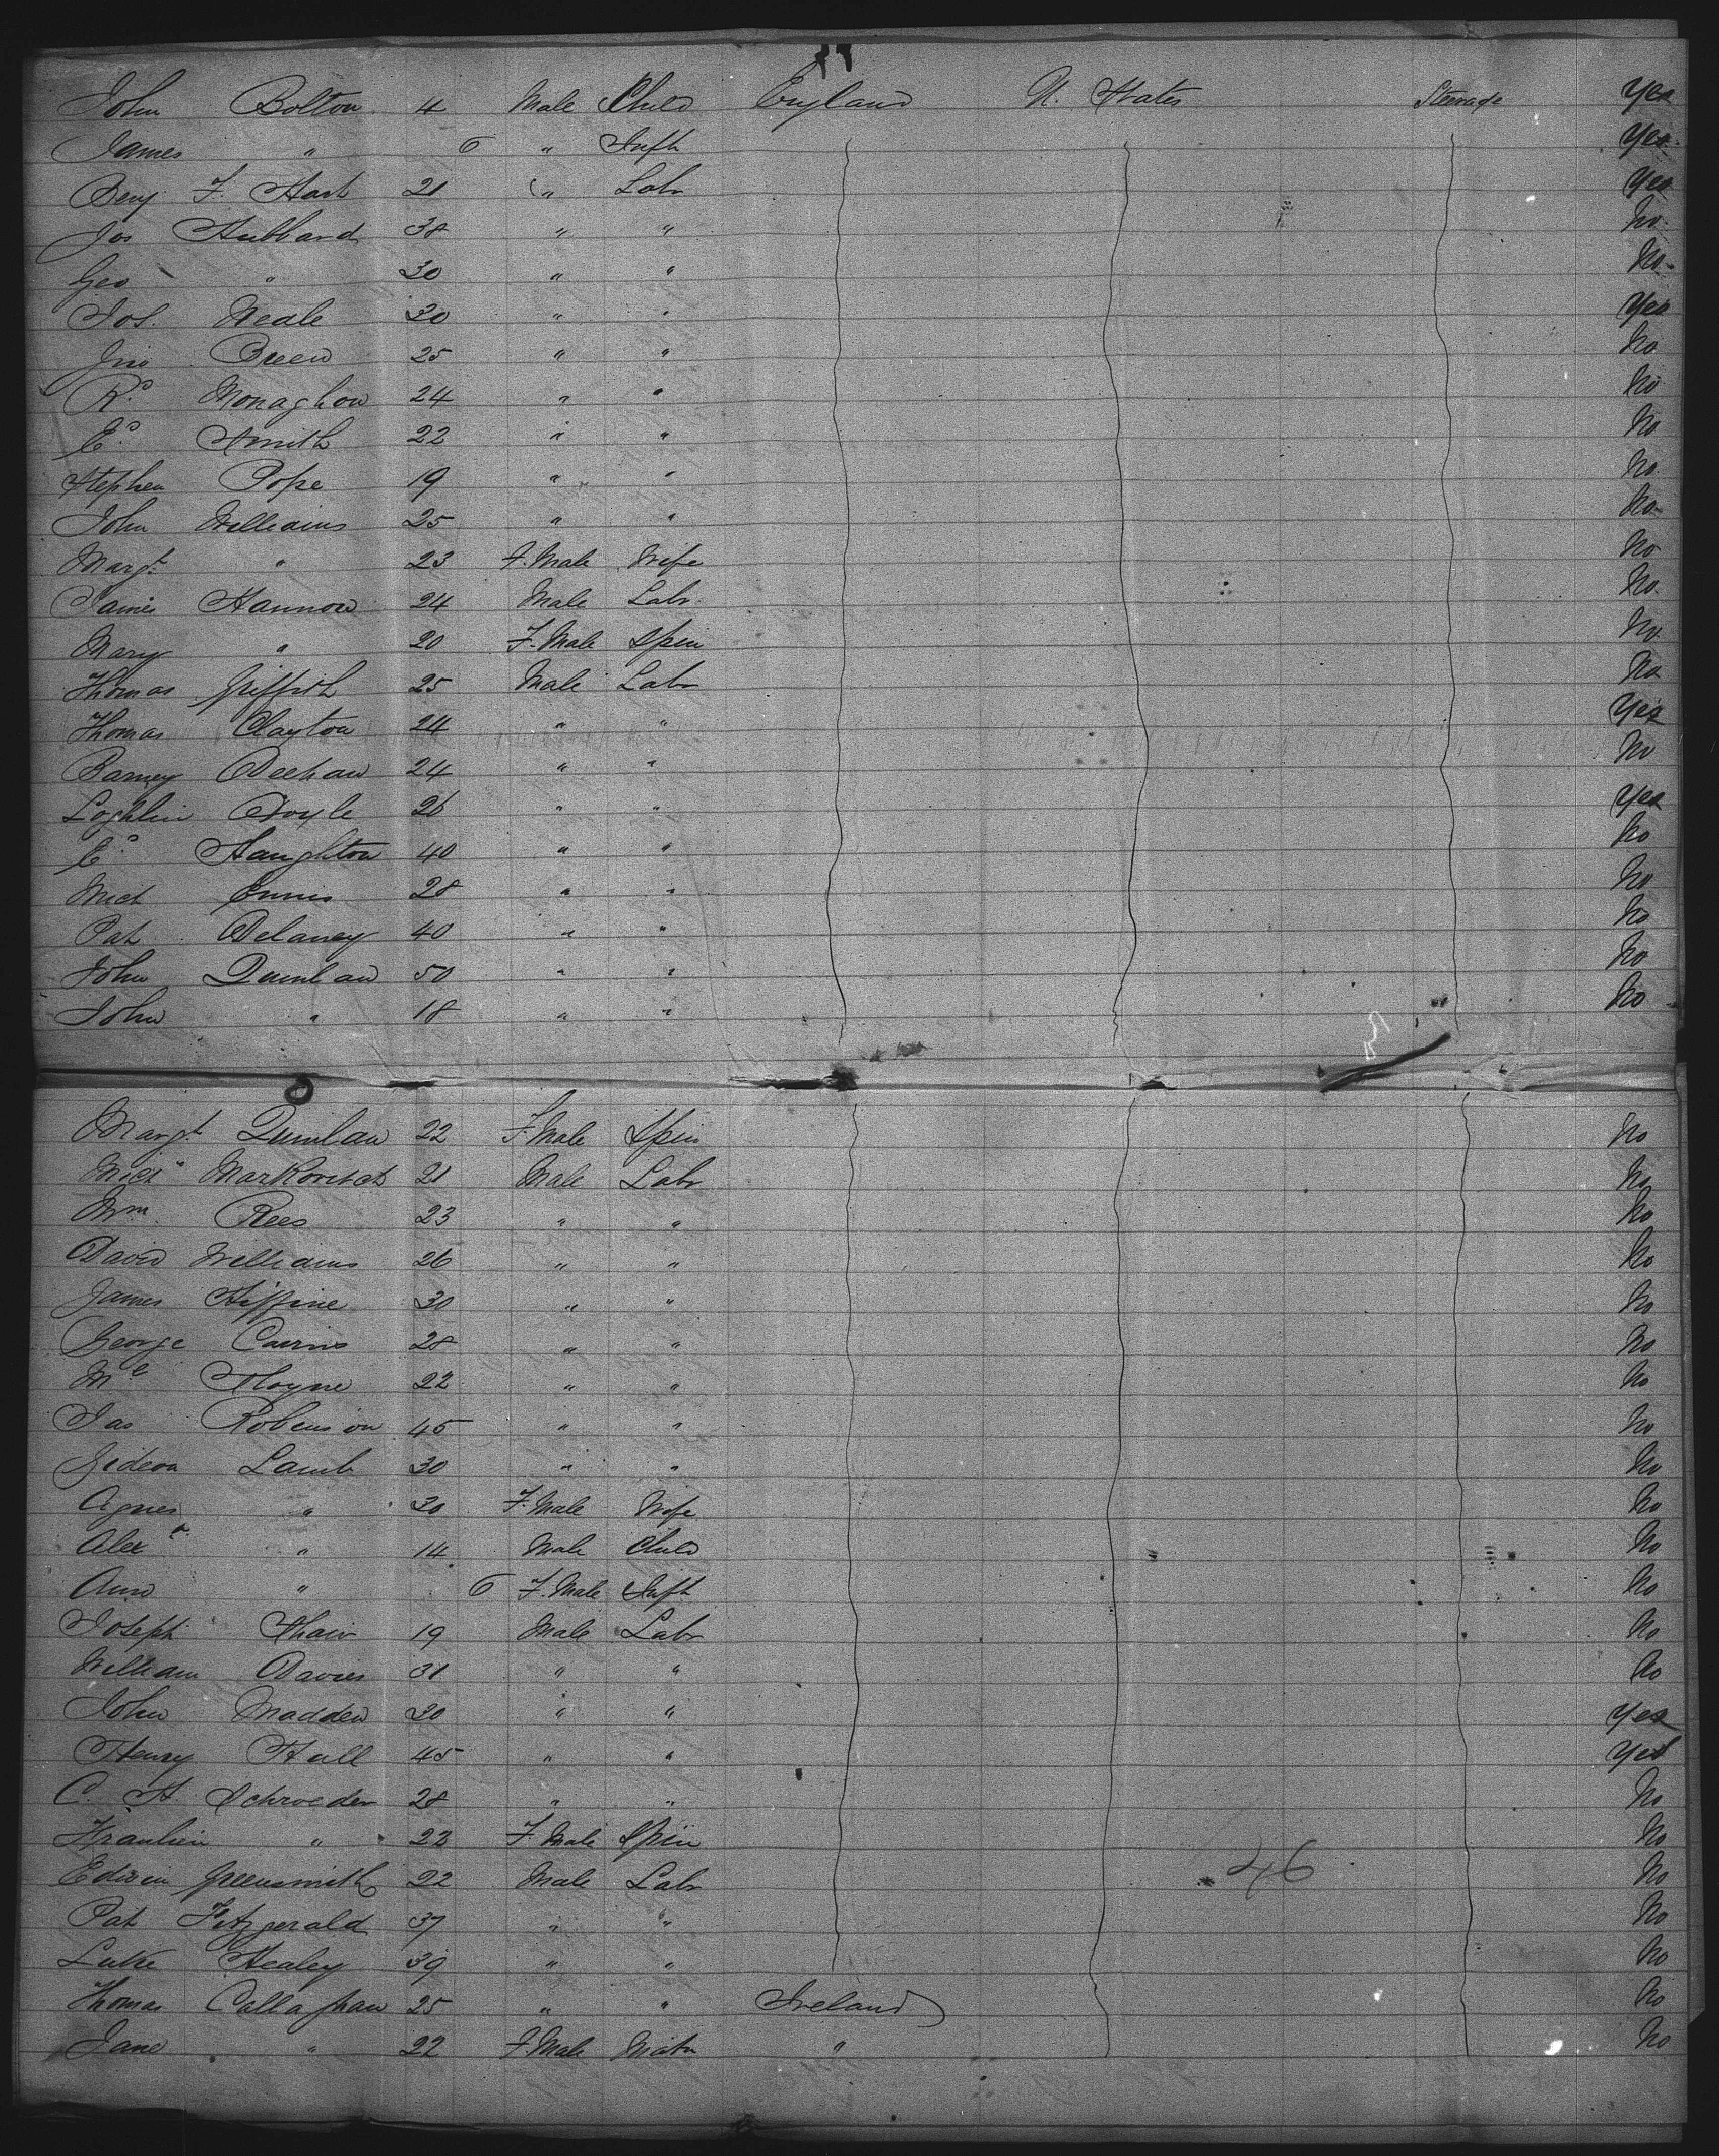 John Bolton 4 Male Child England U. States Steerage Yes
James " 6 " Inft Yes
Benj F. Hart 21 " Labr Yes
Jos Hubbard 38 " " No
Geo " 30 " " No
Jos. Neale 30 " " Yes
Jno Breen 25 " " No
Rd Monaghan 24 " " No
Ed Smith 22 " " No
Stephen Pope 19 " " No
John Williams 25 " " No
Margt " 23 F. Male Wife No
James Hannon 24 Male Labr No
Mary " 20 F. Male Spin No
Thomas Griffith 25 Male Labr No
Thomas Clayton 24 " " Yes
Barney Deehan 24 " " No
Loghlin Doyle 26 " " Yes
Ed Haughton 40 " " No
Mich Ennis 28 " " No
Pat Delaney 40 " " No
John Quinlan 50 " " No
John " 18 " " No
Margt Quinlan 22 F. Male Spin No
Mich Markovitch 21 Male Labr No
Wm Rees 23 " " No
David Williams 26 " " No
James 30 " " No
George Cairns 28 " " No
22 " " No
Jas Robinson 45 " " No
Gideon Lamb 30 " " No
Agnes " 30 F. Male Wife No
Alexr " 14 Male Child No
Ann " 6 F. Male Inft No
Joseph Shaw 19 Male Labr No
William Davies 31 " " No
John Madden 30 " " Yes
Henry Hall 45 " " Yes
C. H. Schroeder 28 " " No
Fraulien " 22 F. Male Spin No
Edwin Greensmith 22 Male Labr 46 No
Pat Fitzgerald 37 " " No
Luke Healey 39 " " No
Thomas Callaghan 25 " " Ireland No
Jane " 22 F. Male Matn " No